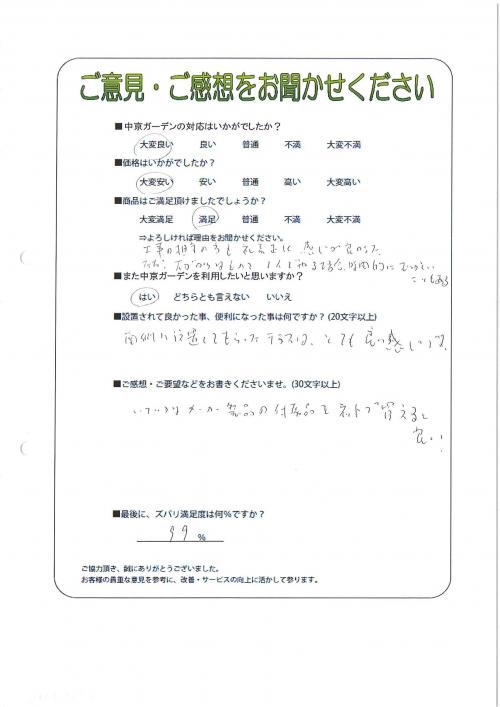 ご意見・ご感想をお聞かせください
■中京ガーデンの対応はいかがでしたか？
大変良い 良い 普通 不満 大変不満
■価格はいかがでしたか？
大変安い 安い 普通 高い 大変高い
■商品はご満足頂けましたでしょうか？
大変満足 満足 普通 不満 大変不満
⇒よろしければ理由をお聞かせください。
工事の担当の方も 感じが良かった
1人でやる場合、時間的に
こともある
■また中京ガーデンを利用したいと思いますか？
はい どちらとも言えない いいえ
■設置されて良かった事、便利になった事は何ですか？(20文字以上)
南側に設置してもらったテラスは、とても良い感じです。
■ご感想・ご要望などをお書きくださいませ。(30文字以上)
いろいろなメーカー製品の付属品もネットで買えると
良い！
■最後に、ズバリ満足度は何％ですか？
99 %
ご協力頂き、誠にありがとうございました。
お客様の貴重な意見を参考に、改善・サービスの向上に活かして参ります。